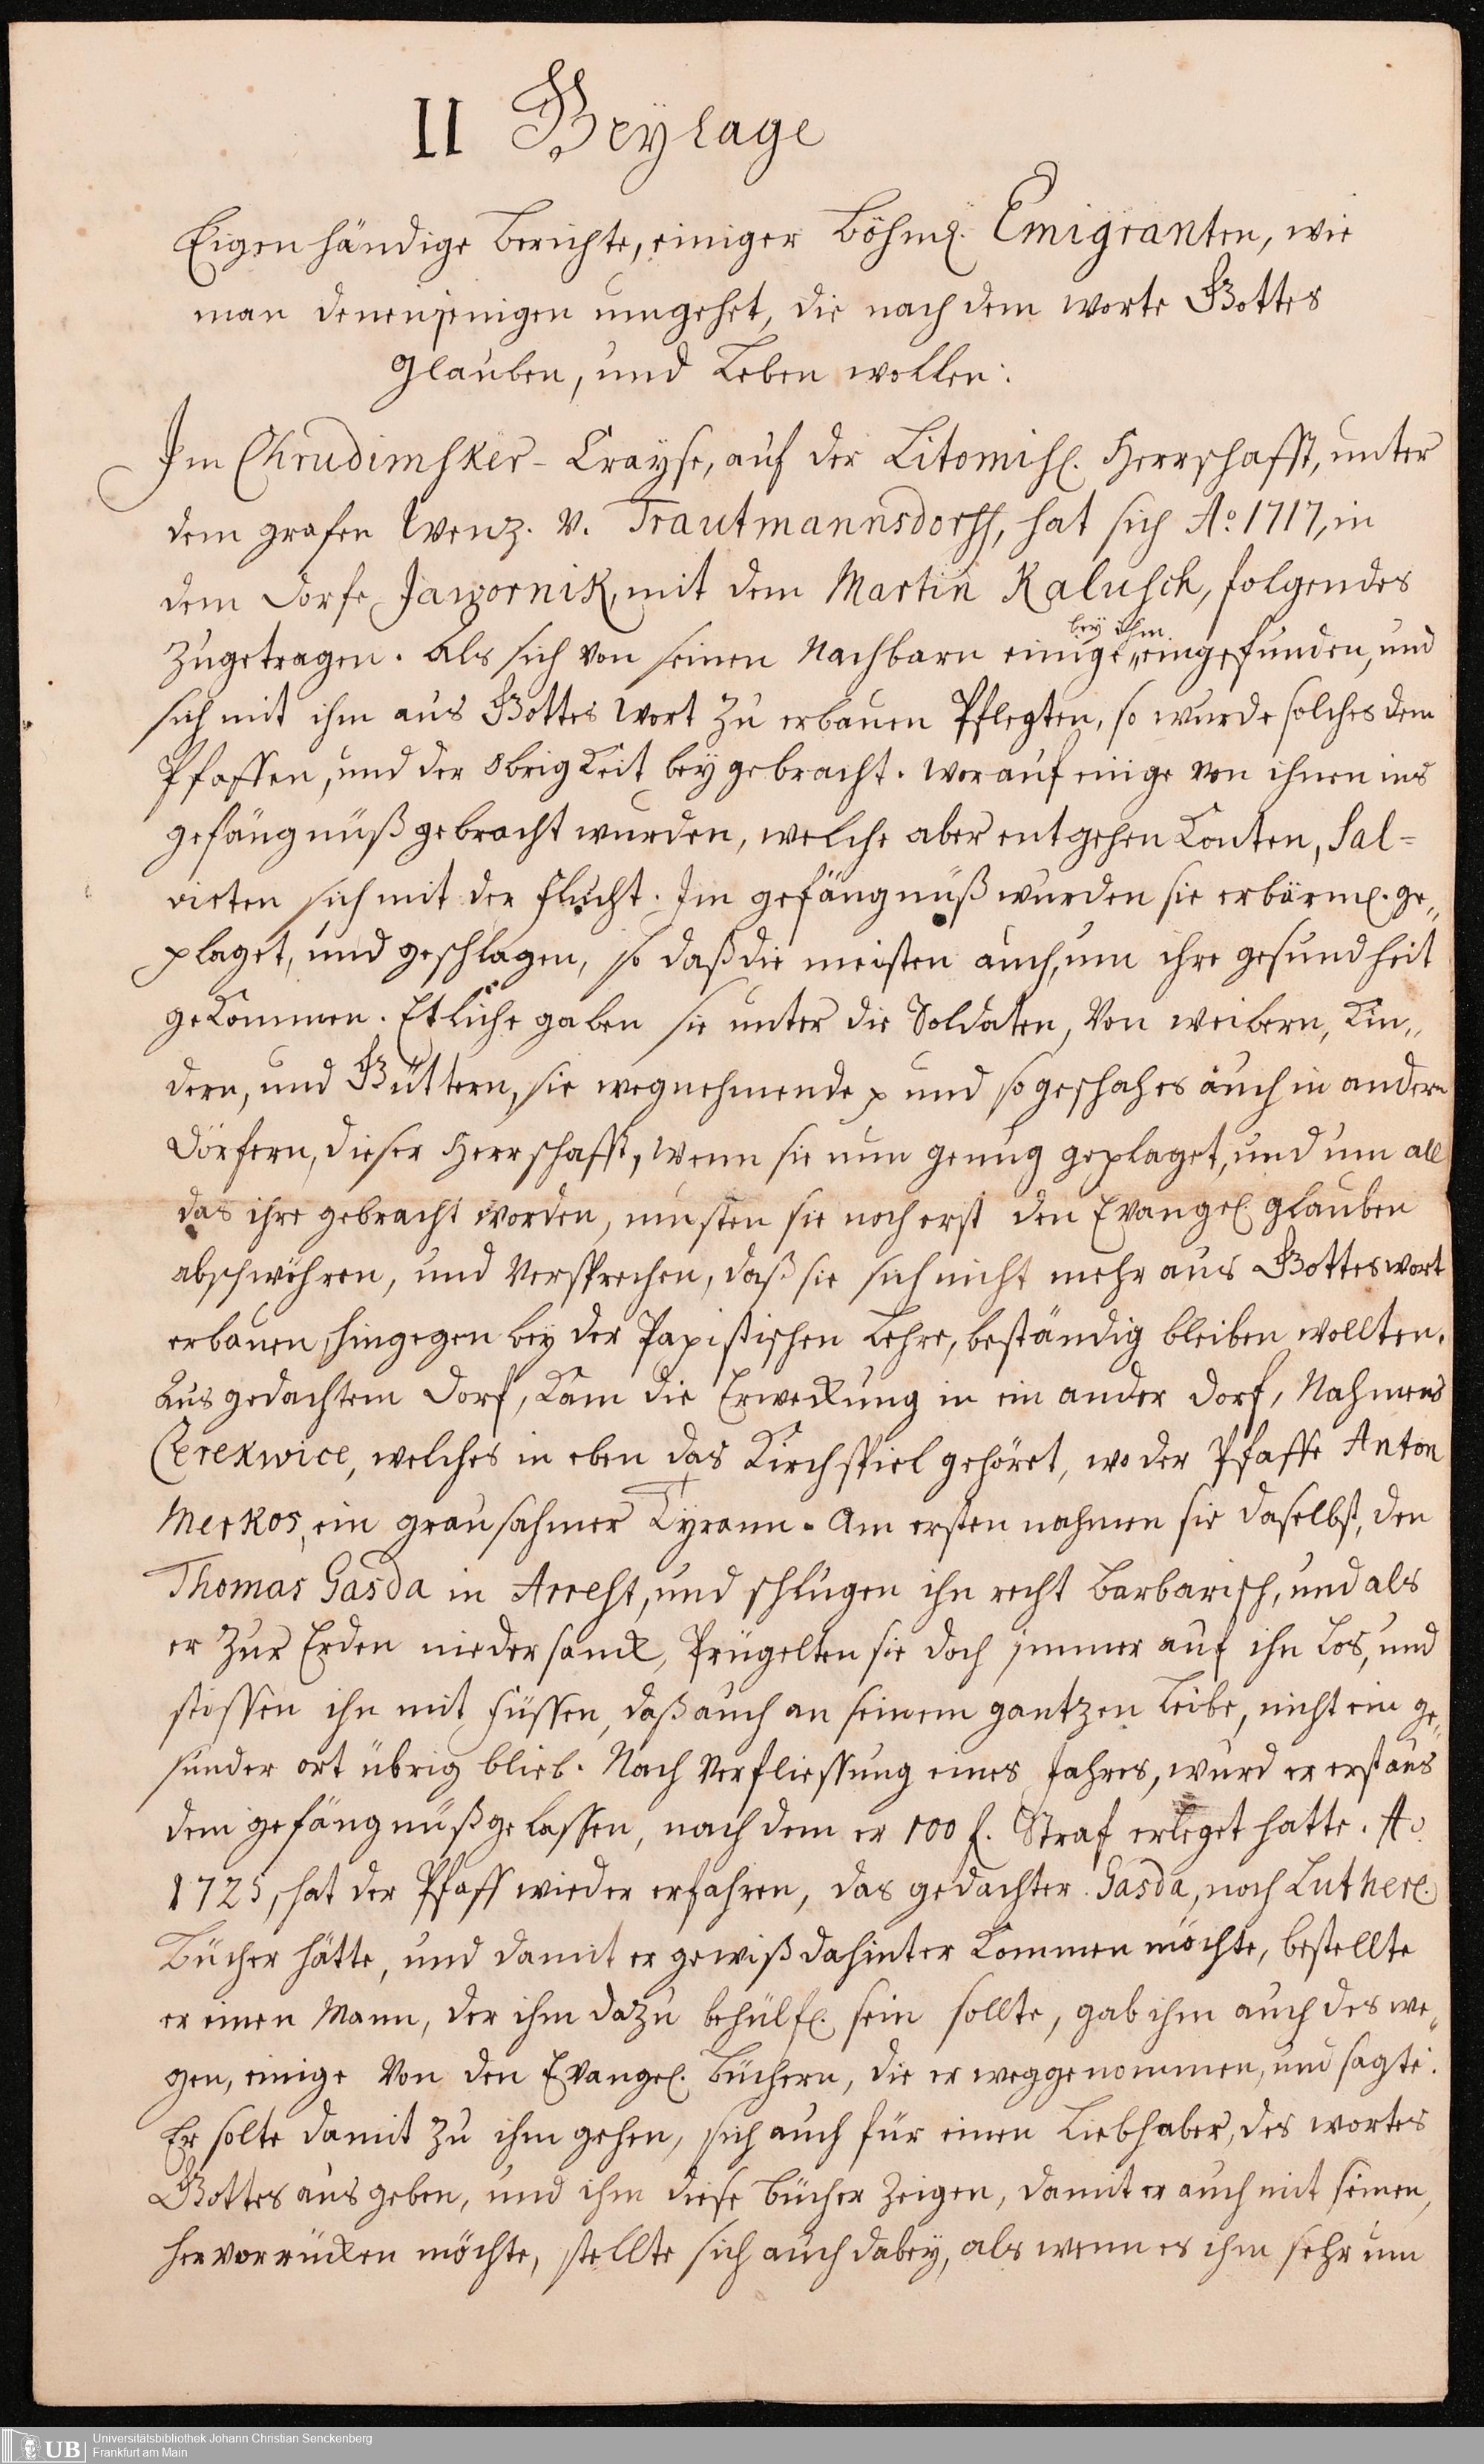 II Beylage
Eigenhändige Berichte, einiger Böhml. Emigranten, wie
man denenjenigen umgehet, die nach dem worte Gottes
glauben, und Leben wollen:
Im Chrudimsker-Crayse, auf der Litomisl. Herrschafft, unter
dem grafen Wenz. v. Trautmannsdorff, hat sich Ao. 1717, in
dem dorfe Jawornik, mit dem Martin Kalusch, folgendes
zugetragen. Als sich von seinen Nachbarn einige bey ihm eingefunden, und
sich mit ihm aus Gottes Wort zu erbauen Pflegten, so wurde solches dem
Pfaffen, und der Obrigkeit beygebracht. worauf einige von ihnen ins
gefängnüß gebracht wurden, welche aber entgehen konten, Sal=
virten sich mit der flucht. Im gefängnüß wurden sie erbärml. ge„
plaget, und geschlagen, so daß die meisten auch, um ihre gesundheit
gekommen. Etliche gaben sie unter die Soldaten, Von weibern, Kin„
dern, und Güttern, sie wegnehmende p und so geschah es auch in andern
dörfern, dieser Herrschafft, wenn sie nun genug geplaget, und um all
das ihre gebracht worden, musten sie noch erst den Evangel. glauben
abschwöhren, und Versprechen, daß sie sich nicht mehr aus Gottes wort
erbauen, hingegen bey der Papistischen Lehre, beständig bleiben wollten.
Aus gedachtem dorf, kam die Erweckung in ein ander dorf, Nahmens
Cerekwice, welches in eben das Kirchspiel gehöret, wo der Pfaffe Anton
Merkos, ein grausahmer Tyrann. Am ersten nahmen sie daselbst, den
Thomas Gasda in Arrest, und schlugen ihn recht Barbarisch, und als
er zur Erden niedersanck, Prügelten sie doch immer auf ihn Los, und
stiessen ihn mit füssen, daß auch an seinem gantzen Leibe, nicht ein ge„
sunder ort übrig blieb. Nach Verfliessung eines Jahres, wurd er erst aus
dem gefängnüß gelassen, nach dem er 100 f. Straf erleget hatte. Ao.
1725, hat der Pfaff wieder erfahren, das gedachter Gasda, noch Lutherl.
Bücher hätte, und damit er gewiß dahinter kommen möchte, bestellte
er einen Mann, der ihm dazu behülfl. sein sollte, gab ihm auch des we„
gen, einige Von den Evangel. Büchern, die er weggenommen, und sagte:
Er solte damit zu ihm gehen, sich auch für einen Liebhaber, des wortes
Gottes ausgeben, und ihm diese bücher zeigen, damit er auch mit seinen,
hervorrücken möchte, stellte sich auch dabey, als wenn es ihm sehr um
UB
Universitätsbibliothek Johann Christian Senckenberg
Frankfurt am Main